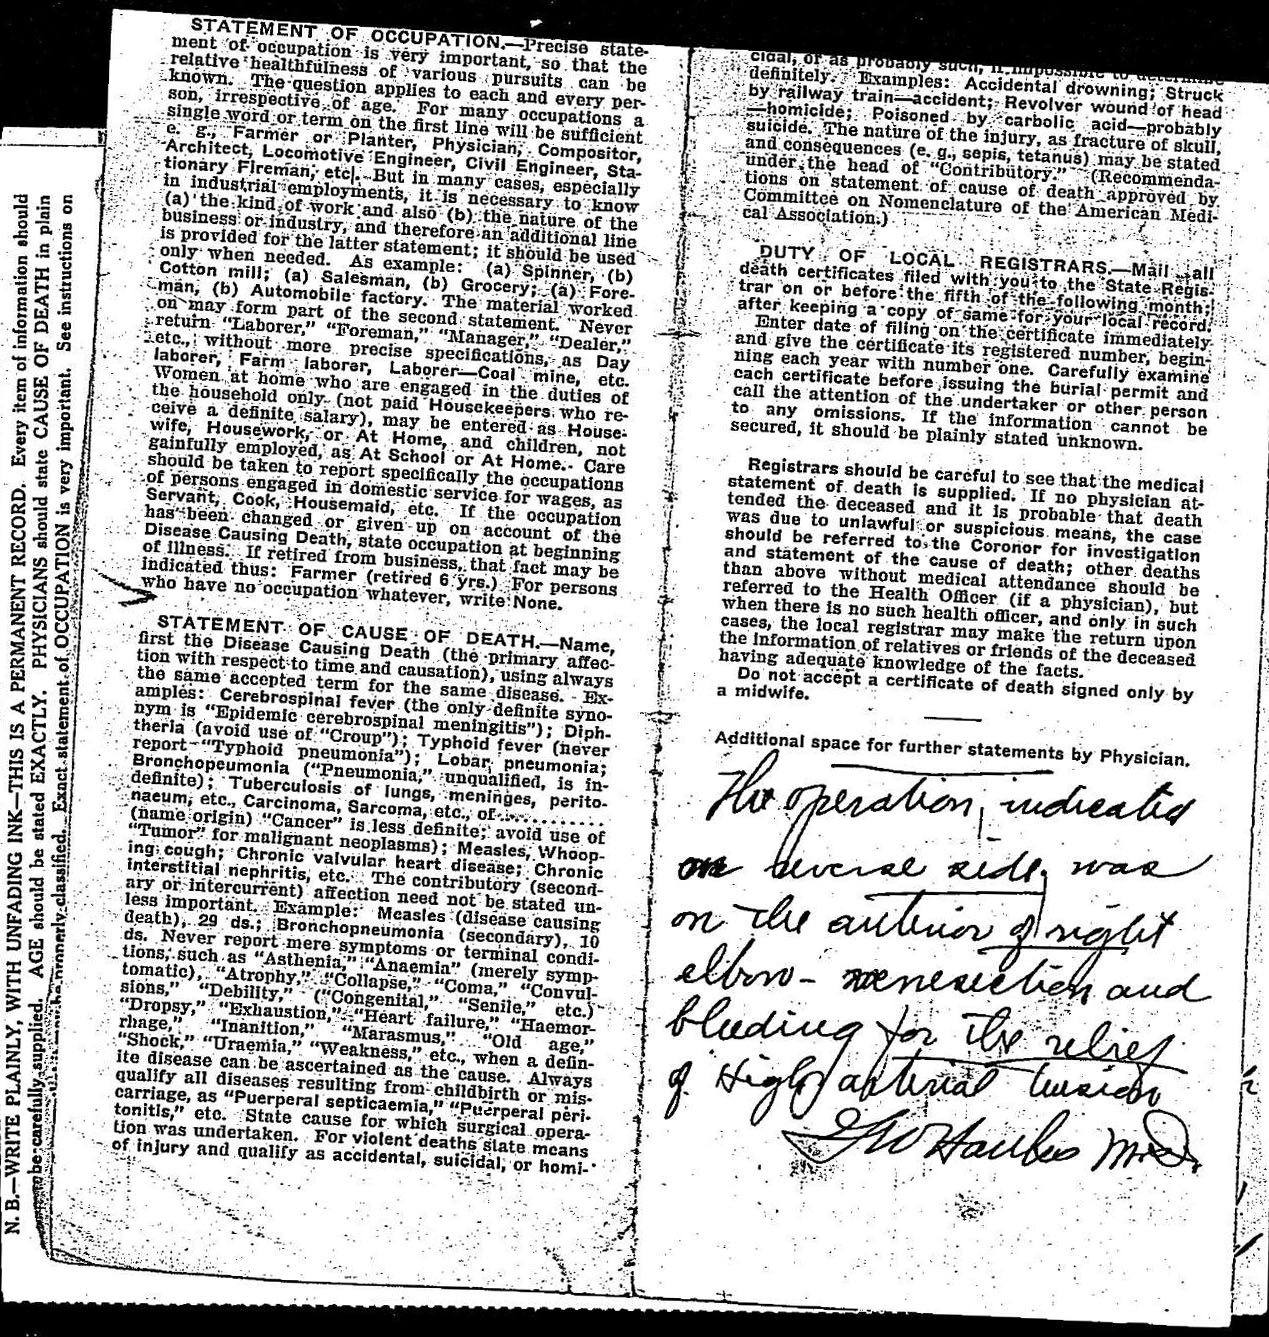 N. B.—WRITE PLAINLY, WITH UNFADING INK—THIS IS A PERMANENT RECORD. Every item of information should
be carefully supplied. AGE should be stated EXACTLY. PHYSICIANS should state CAUSE OF DEATH in plain
be properly classified. Exact statement of OCCUPATION is very important. See instructions on
STATEMENT OF OCCUPATION.—Precise state-
ment of occupation is very important, so that the
relative healthfulness of various pursuits can be
known. The question applies to each and every per-
son, irrespective of age. For many occupations a
single word or term on the first line will be sufficient
e. g., Farmer or Planter, Physician, Compositor,
Architect, Locomotive Engineer, Civil Engineer, Sta-
tionary Fireman, etc. But in many cases, especially
in industrial employments, it is necessary to know
(a) the kind of work and also (b) the nature of the
business or industry, and therefore an additional line
is provided for the latter statement; it should be used
only when needed. As example: (a) Spinner, (b)
Cotton mill; (a) Salesman, (b) Grocery; (a) Fore-
man, (b) Automobile factory. The material worked
on may form part of the second statement. Never
return "Laborer," "Foreman," "Manager," "Dealer,"
etc., without more precise specifications, as Day
laborer, Farm laborer, Laborer—Coal mine, etc.
Women at home who are engaged in the duties of
the household only (not paid Housekeepers who re-
ceive a definite salary), may be entered as House-
wife, Housework, or At Home, and children, not
gainfully employed, as At School or At Home. Care
should be taken to report specifically the occupations
of persons engaged in domestic service for wages, as
Servant, Cook, Housemaid, etc. If the occupation
has been changed or given up on account of the
Disease Causing Death, state occupation at beginning
of illness. If retired from business, that fact may be
indicated thus: Farmer (retired 6 yrs.) For persons
who have no occupation whatever, write None.
STATEMENT OF CAUSE OF DEATH.—Name,
first the Disease Causing Death (the primary affec-
tion with respect to time and causation), using always
the same accepted term for the same disease. Ex-
amples: Cerebrospinal fever (the only definite syno-
nym is "Epidemic cerebrospinal meningitis"); Diph-
theria (avoid use of "Croup"); Typhoid fever (never
report "Typhoid pneumonia"); Lobar pneumonia;
Bronchopeumonia ("Pneumonia," unqualified, is in-
definite); Tuberculosis of lungs, meninges, perito-
naeum, etc., Carcinoma, Sarcoma, etc., of............
(name origin) "Cancer" is less definite; avoid use of
"Tumor" for malignant neoplasms); Measles, Whoop-
ing cough; Chronic valvular heart disease; Chronic
interstitial nephritis, etc. The contributory (second-
ary or intercurrent) affection need not be stated un-
less important. Example: Measles (disease causing
death), 29 ds.; Bronchopneumonia (secondary), 10
ds. Never report mere symptoms or terminal condi-
tions, such as "Asthenia," "Anaemia" (merely symp-
tomatic), "Atrophy," "Collapse," "Coma," "Convul-
sions," "Debility," ("Congenital," "Senile," etc.)
"Dropsy," "Exhaustion," "Heart failure," "Haemor-
rhage," "Inanition," "Marasmus," "Old age,"
"Shock," "Uraemia," "Weakness," etc., when a defin-
ite disease can be ascertained as the cause. Always
qualify all diseases resulting from childbirth or mis-
carriage, as "Puerperal septicaemia," "Puerperal peri-
tonitis," etc. State cause for which surgical opera-
tion was undertaken. For violent deaths state means
of injury and qualify as accidental, suicidal, or homi-
cidal, or as probably such, if impossible to determine
definitely. Examples: Accidental drowning; Struck
by railway train—accident; Revolver wound of head
—homicide; Poisoned by carbolic acid—probably
suicide. The nature of the injury, as fracture of skull,
and consequences (e. g., sepis, tetanus) may be stated
under the head of "Contributory." (Recommenda-
tions on statement of cause of death approved by
Committee on Nomenclature of the American Medi-
cal Association.)
DUTY OF LOCAL REGISTRARS.—Mail all
death certificates filed with you to the State Regis-
trar on or before the fifth of the following month,
after keeping a copy of same for your local record.
Enter date of filing on the certificate immediately
and give the certificate its registered number, begin-
ning each year with number one. Carefully examine
each certificate before issuing the burial permit and
call the attention of the undertaker or other person
to any omissions. If the information cannot be
secured, it should be plainly stated unknown.
Registrars should be careful to see that the medical
statement of death is supplied. If no physician at-
tended the deceased and it is probable that death
was due to unlawful or suspicious means, the case
should be referred to the Coronor for investigation
and statement of the cause of death; other deaths
than above without medical attendance should be
referred to the Health Officer (if a physician), but
when there is no such health officer, and only in such
cases, the local registrar may make the return upon
the information of relatives or friends of the deceased
having adequate knowledge of the facts.
Do not accept a certificate of death signed only by
a midwife.
Additional space for further statements by Physician.
The operation, indicated
on reverse side, was
on the anterior of right
elbow - venesection and
bleeding for the relief
of High arterial tension
M.D.